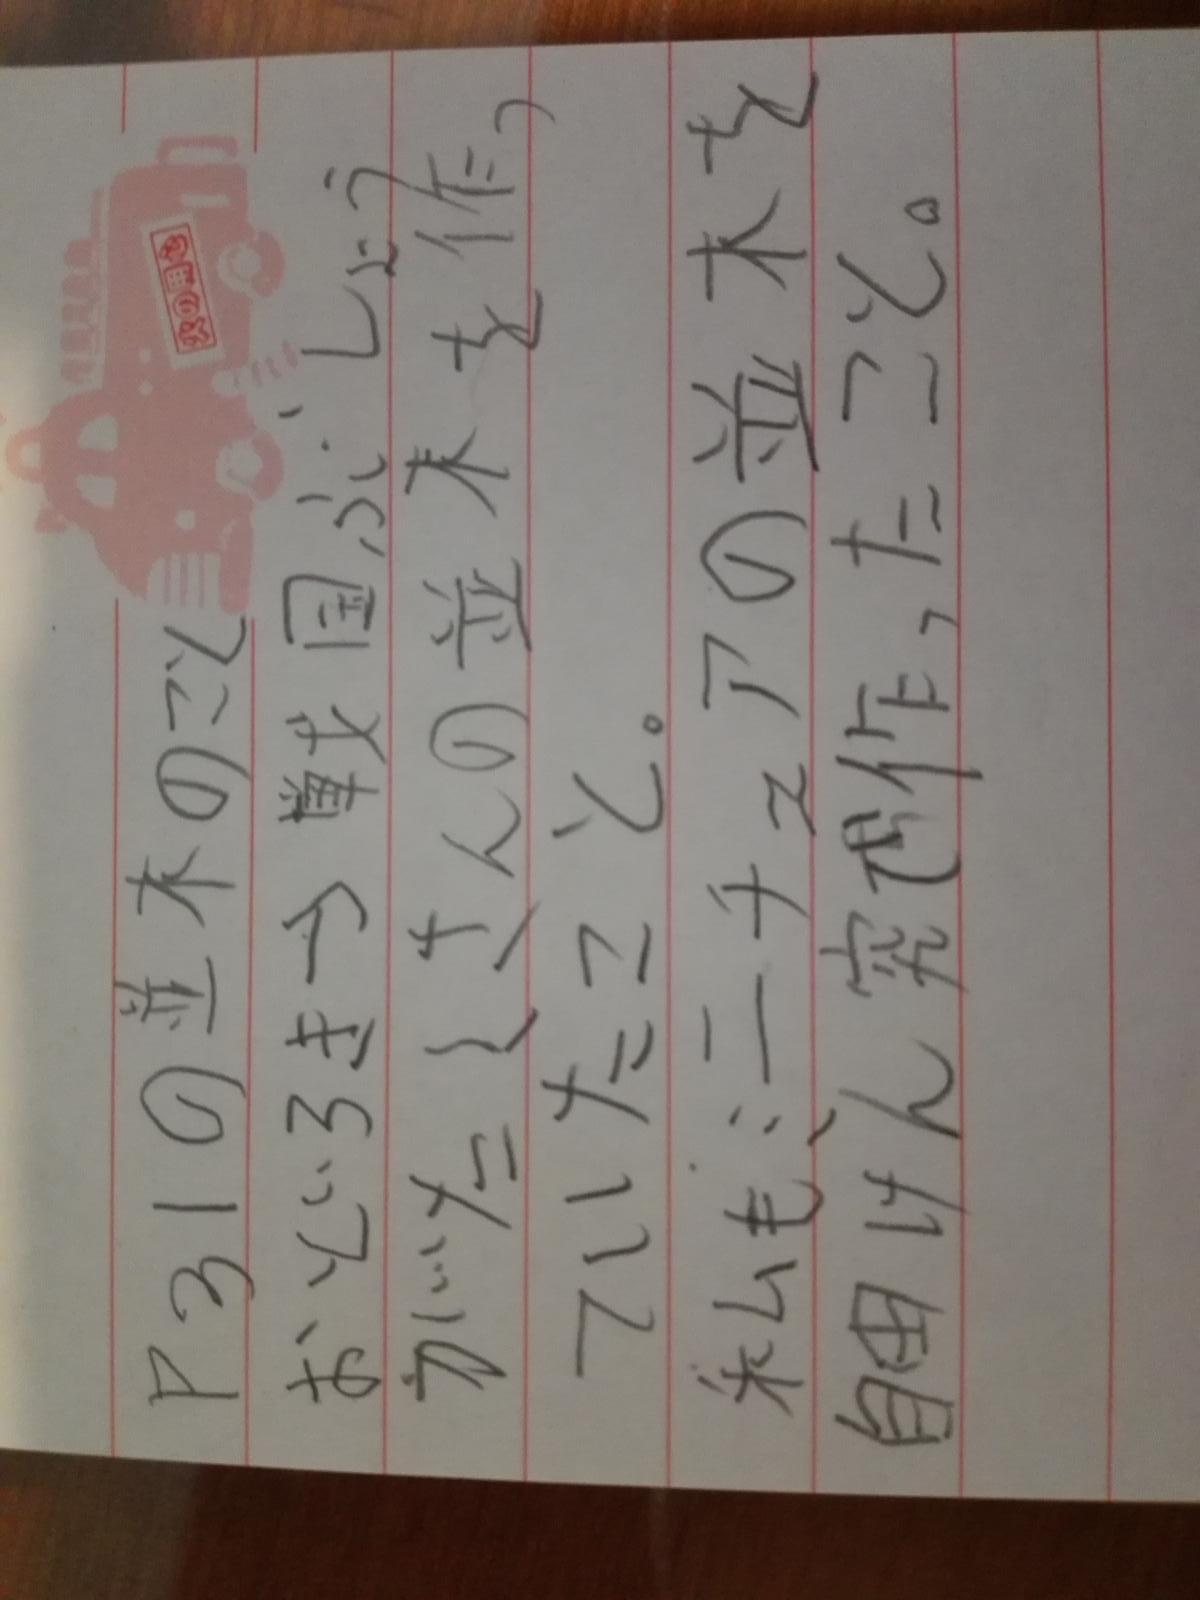 火の用心
P31の並木のこと
おどろき 国が、しょう
たくさんの並木を作っ
ていたこと。
私もミニチュアの並木を
自由けん究で作ったこと。